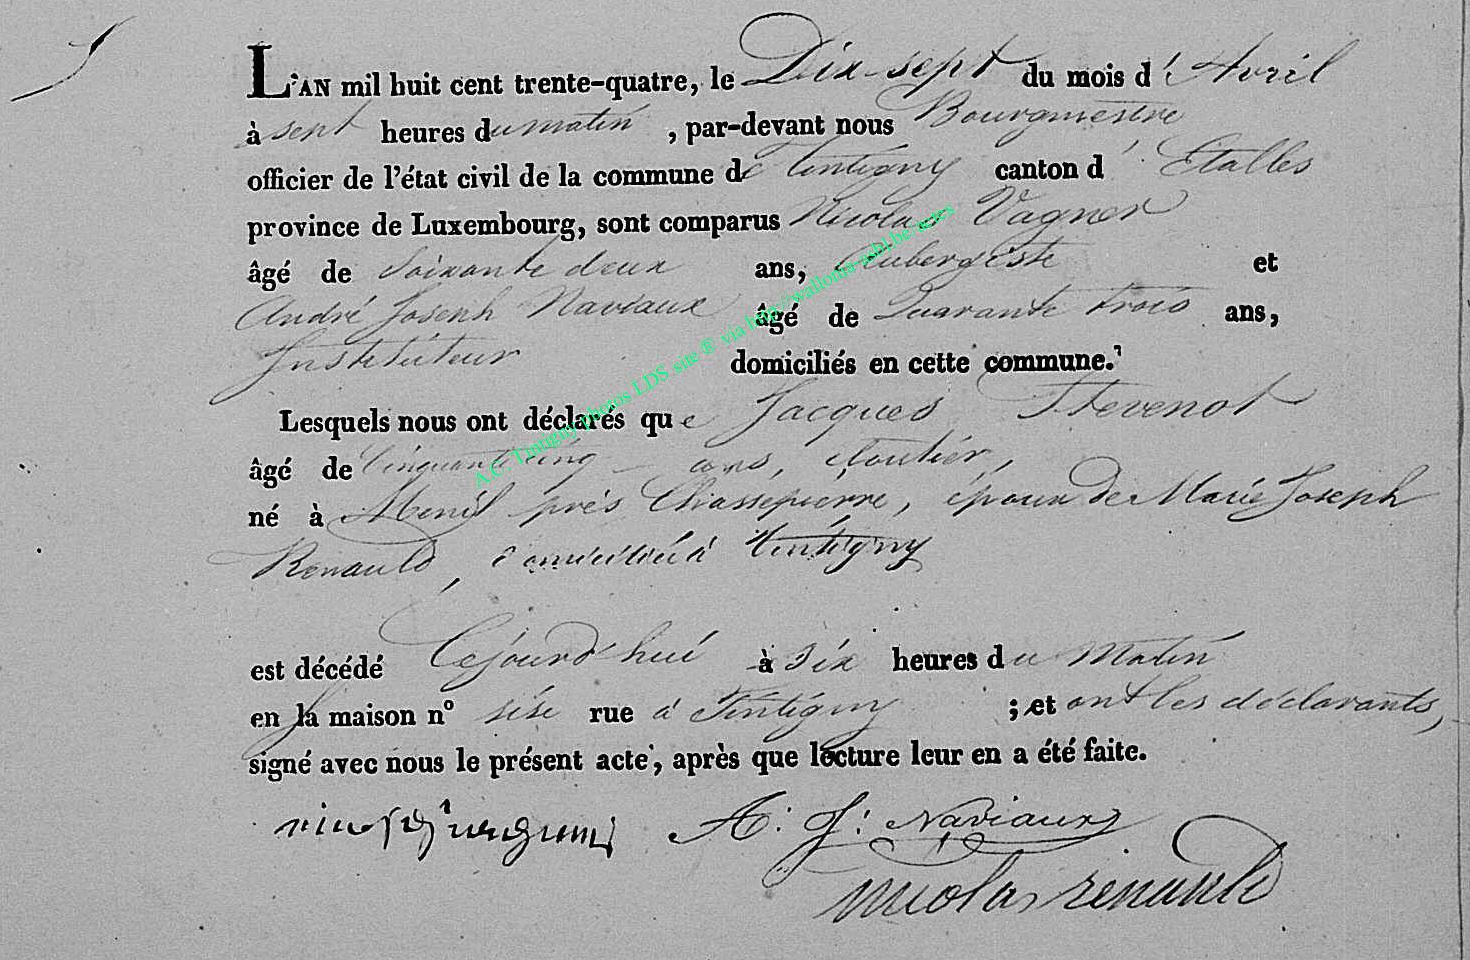 L'AN mil huit cent trente-quatre, le Dix-sept du mois d'Avril
à sept heures du matin, par-devant nous Bourgmestre
officier de l'état civil de la commune de Tintigny canton d'Etalles
province de Luxembourg, sont comparus Nicolas Vagner
âgé de Soixante deux ans, Aubergiste et
André Joseph Naviaux âgé de Quarante trois ans,
Instituteur domiciliés en cette commune.
Lesquels nous ont déclarés que Jacques Stevenot
âgé de Cinquante cinq ans, Cloutier,
né à Menil près Chassepierre, époux de Marie Joseph
Renauld, domicilié à Tintigny
est décédé Cejourd'hui à six heures du Matin
en la maison n° sise rue à Tintigny ; et ont les déclarants,
signé avec nous le présent acte, après que lecture leur en a été faite.
A. J. Naviaux
nicolas renauld
A.C. Tintigny photos LDS site ® via http://wallonia-asbl.be/actes